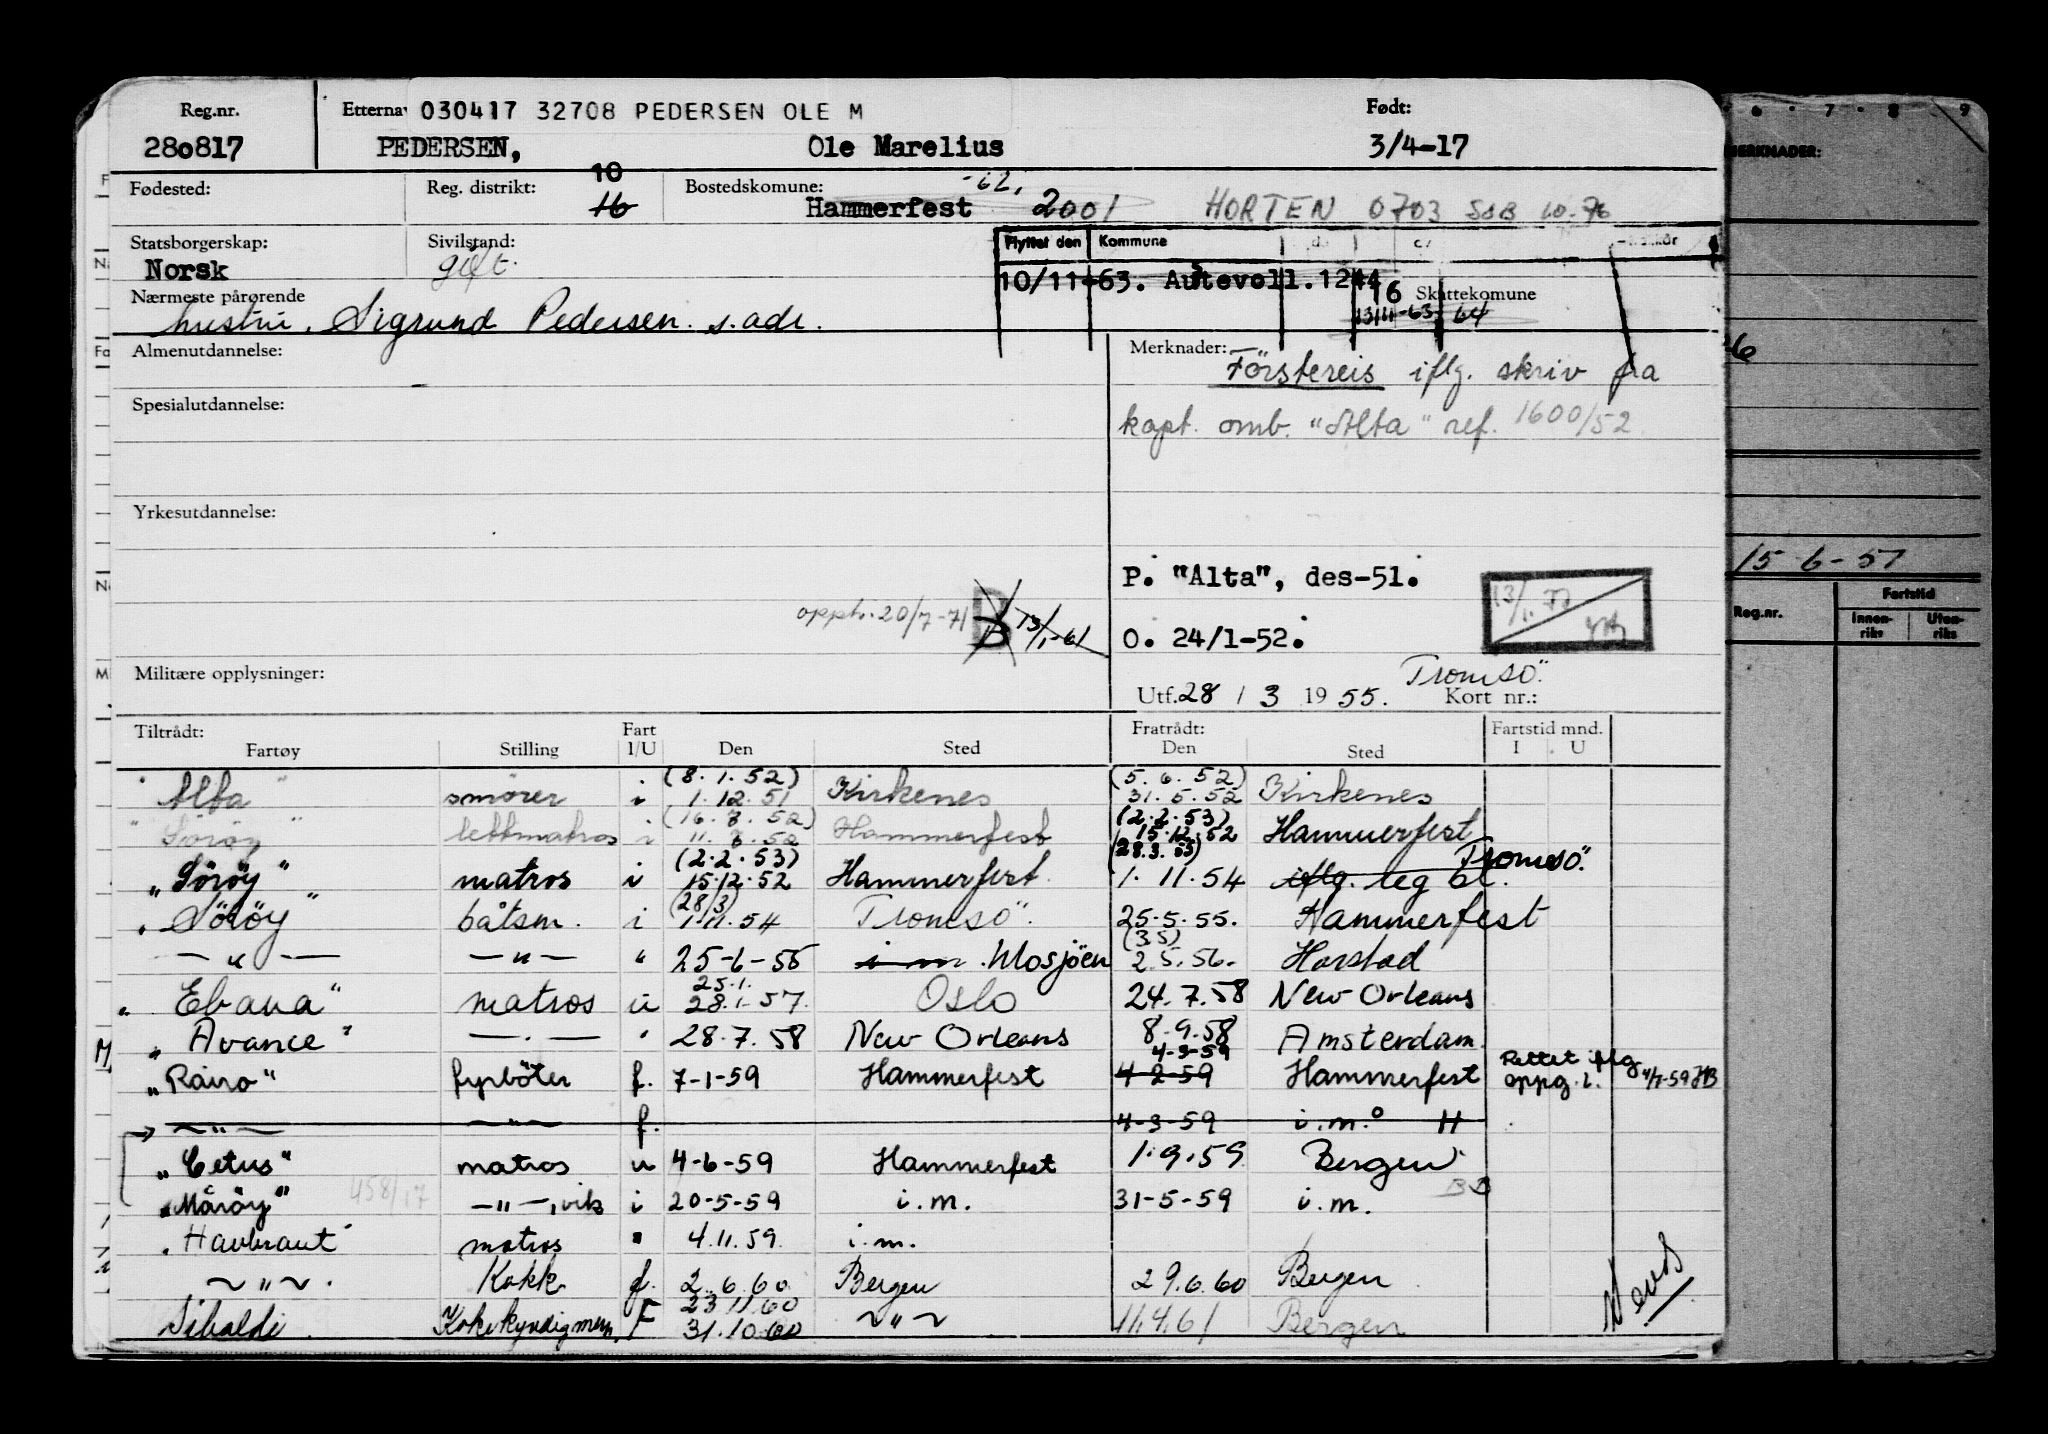 Reg.nr. Etternav 030417 32708 PEDERSEN OLE M Født:
280817 PEDERSEN, Ole Marelius 3/4-17
Fødested: Reg. distrikt: 10 16 Bostedskomune: Hammerfest -62, 2001 HORTEN 0703 SSB 10-76
Statsborgerskap: Sivilstand: Flyttet den Kommune
Norsk gift. 10/11-63. Austevoll.1244 16 Skattekomune
Nærmeste pårørende 13/11-63 64
hustru. Sigrund Pedersen. s.adr.
Almenutdannelse: Merknader: Förstereis iflg. skriv fra
Spesialutdannelse: kapt. omb. "Alta" ref. 1600/52
Yrkesutdannelse:
P. "Alta", des-51.
opph. 20/7-71 B 13/1-61 O. 24/1-52.
Militære opplysninger: Tromsö.
Utf. 28 / 3 1955. Kort nr.:
Tiltrådt: Fart Fratrådt: Fartstid mnd.
Fartøy Stilling I/U Den Sted Den Sted I U
(8.1.52) (5.6.52)
"Alta" smörer i 1.12.51 Kirkenes 31.5.52 Kirkenes
(16.7.52) (2.2.53)
"Söröy" lettmatros i 11.7.52 Hammerfest 15.12.52 Hammerfest
(2.2.53) (28.3.53)
"Söröy" matros i 15.12.52 Hammerfest. 1.11.54 iflg. leg bl. Tromsö.
(28/3)
"Söröy" båtsm. i 1.11.54 Tromsö". 25.5.55. Hammerfest
(3.5)
— " — — " — " 25-6-55 i m. Mosjöen 2.5.56. Harstad
25.1.
"Ebana" matros u 28.1.57. Oslo 24.7.58 New Orleans
"Avance" — . — " 28.7.58 New Orleans 8.9.58 Amsterdam.
4-3-59
"Rairo" fyrböter f. 7-1-59 Hammerfest 4-2-59 Hammerfest Rettet iflg oppg. i. 4/7-59 HB
— " — — " — f. 4-3-59 i.m. H
"Cetus" matros u 4-6-59 Hammerfest 1.9.59 Bergen
"Måröy" 458/17 — " —, vik i 20-5-59 i.m. 31-5-59 i.m.
"Havbraut" matros " 4.11.59. i.m.
— " — . Kokk f. 2.6.60 Bergen 29.6.60 Bergen
23.11.60
Sibaldi. Kokekyndigmen. F 31.10.60 — " — 11.4.61 Bergen
6 7 8 9
MERKNADER:
15-6-57
Reg.nr. Fartstid
Innenriks Utenriks